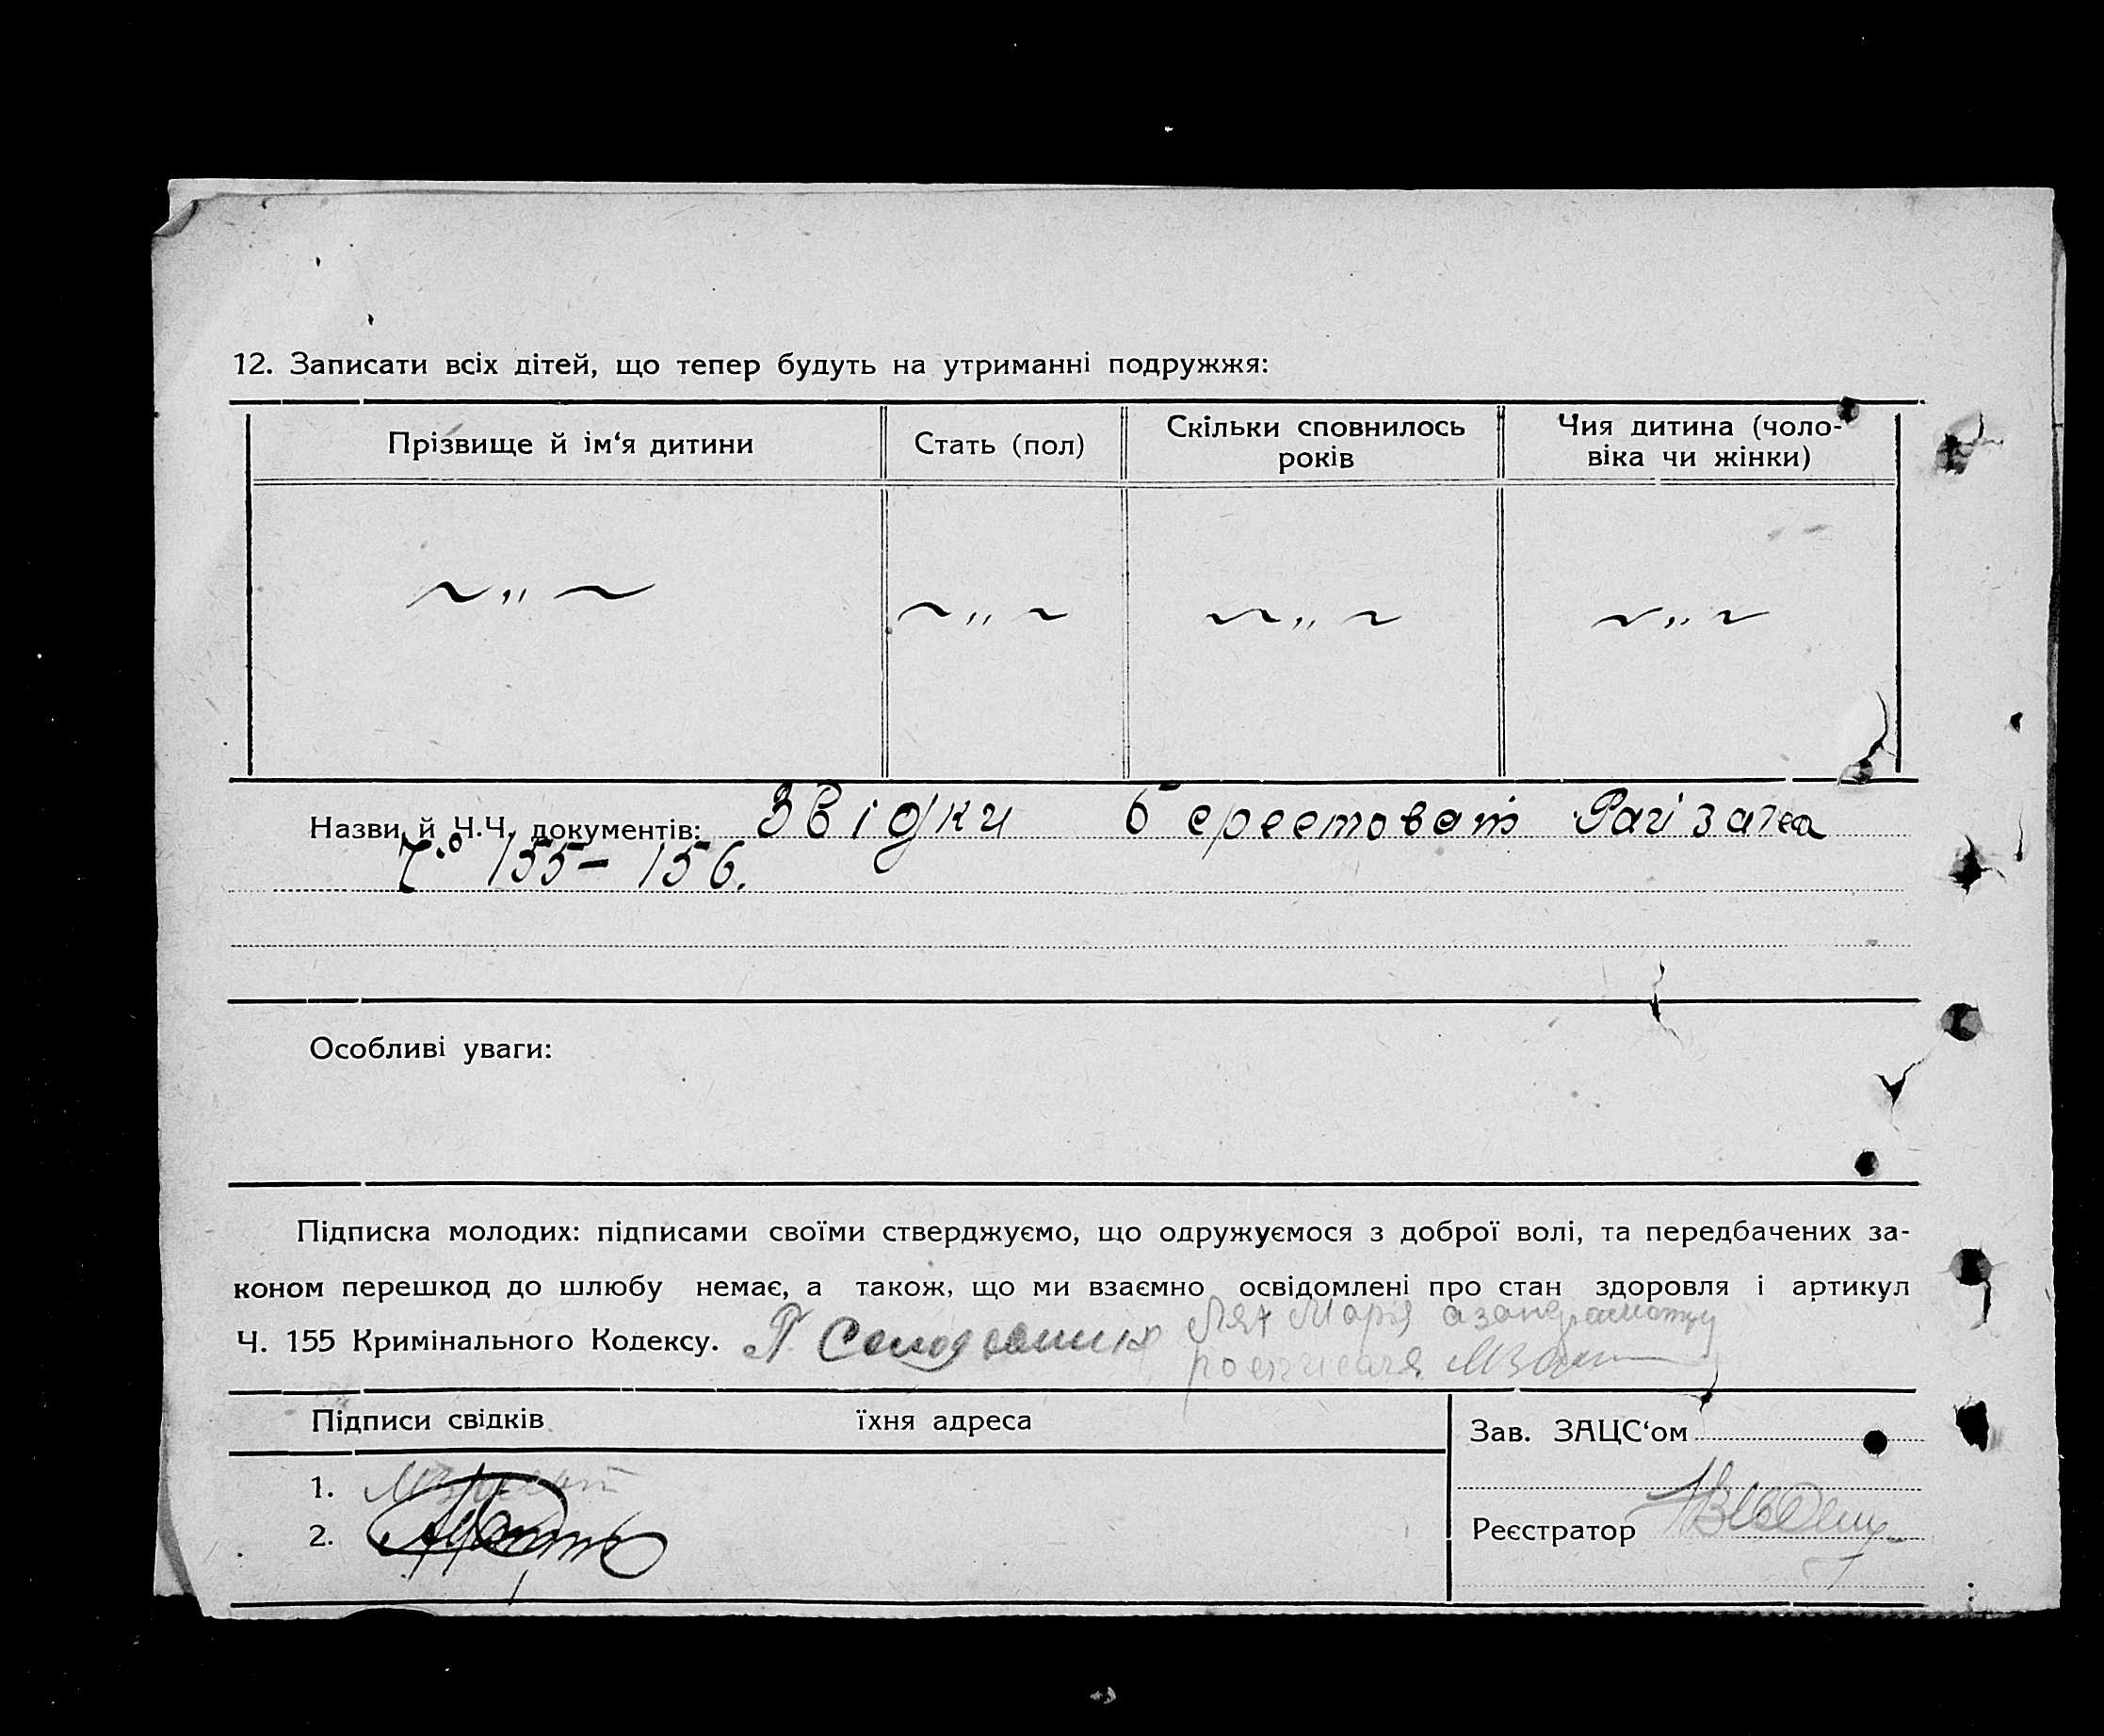 12. Записати всіх дітей, що тепер будуть на утриманні подружжя:
Прізвище й ім‘я дитини
Стать (пол)
Скільки сповнилось
років
Чия дитина (чоло-
віка чи жінки)
~ „ ~ ~ „ ~ ~ „ ~ ~ „ ~
Назви й Ч.Ч. документів: Звідки
155 – 156.
Особливі уваги:
Підписка молодих: підписами своїми стверджуємо, що одружуємося з доброї волі, та передбачених за-
коном перешкод до шлюбу немає, а також, що ми взаємно освідомлені про стан здоровля і артикул
Ч. 155 Кримінального Кодексу.
Лях Марія
Підписи свідків їхня адреса
Зав. ЗАЦС‘ом
1.
2.
Реєстратор